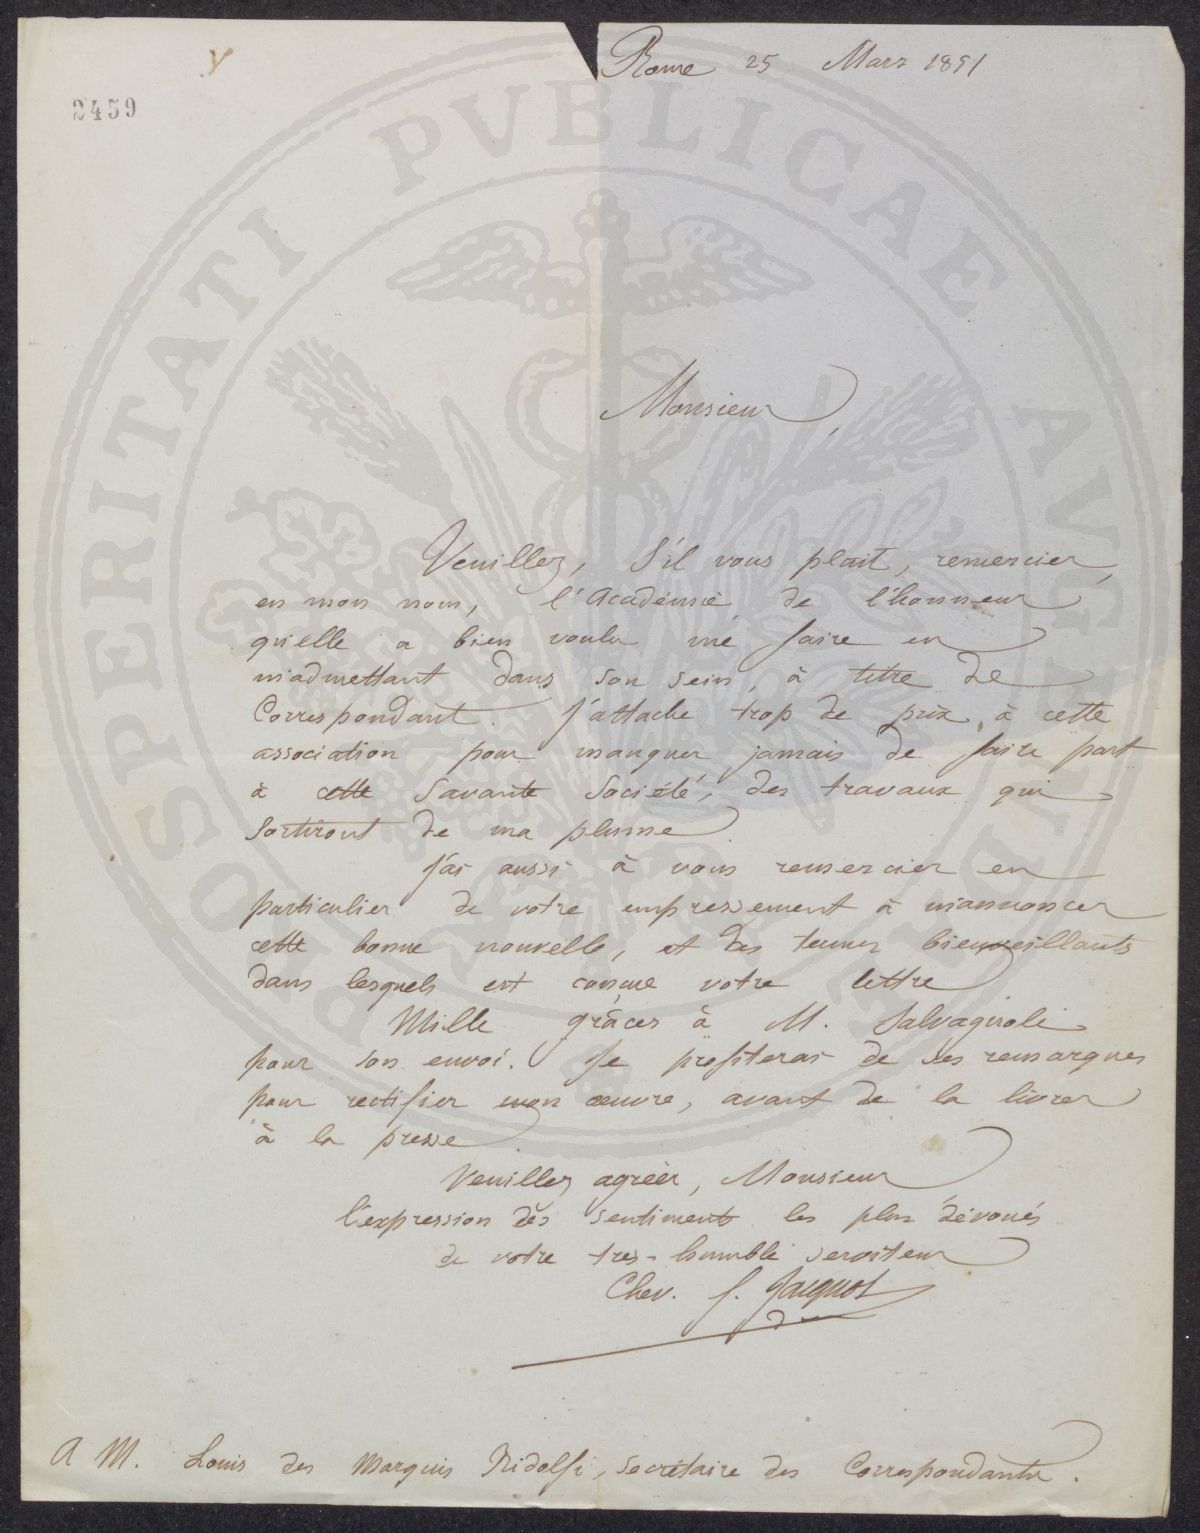 Rome 25 Mars 1851
2459
PROSPERITATI PVBLICAE AVGENDAE
Monsieur,
Veuillez, S'il vous plait, remercier,
en mon nom, l'Académie de l'honneur
qu'elle a bien voulu me faire en
m'admettant dans son sein, à titre de
Correspondant. J'attache trop de prix à cette
association pour manquer jamais de faire part
à cette Savante Société, des travaux qui
Sortiront de ma plume.
J'ai aussi à vous remercier en
particulier de votre empressement à m'annoncer
cette bonne nouvelle, et des termes bienveillants
dans lesquels est conçue votre lettre
Mille grâces à M. Salvagnoli
pour son envoi. Je profiterai de ses remarques
pour rectifier mon œuvre, avant de la livrer
à la presse
Veuillez agréer, Monsieur
l'expression des Sentiments les plus dévoués
de votre très-humble serviteur
Chev. f. Jacquot
A M. Louis des Marquis Ridolfi, Secrétaire des Correspondants.